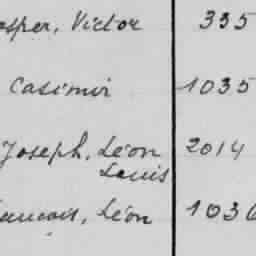 asper, Victor 335
Casimir 1035
Joseph, Léon 2014
Louis
Léon 1036